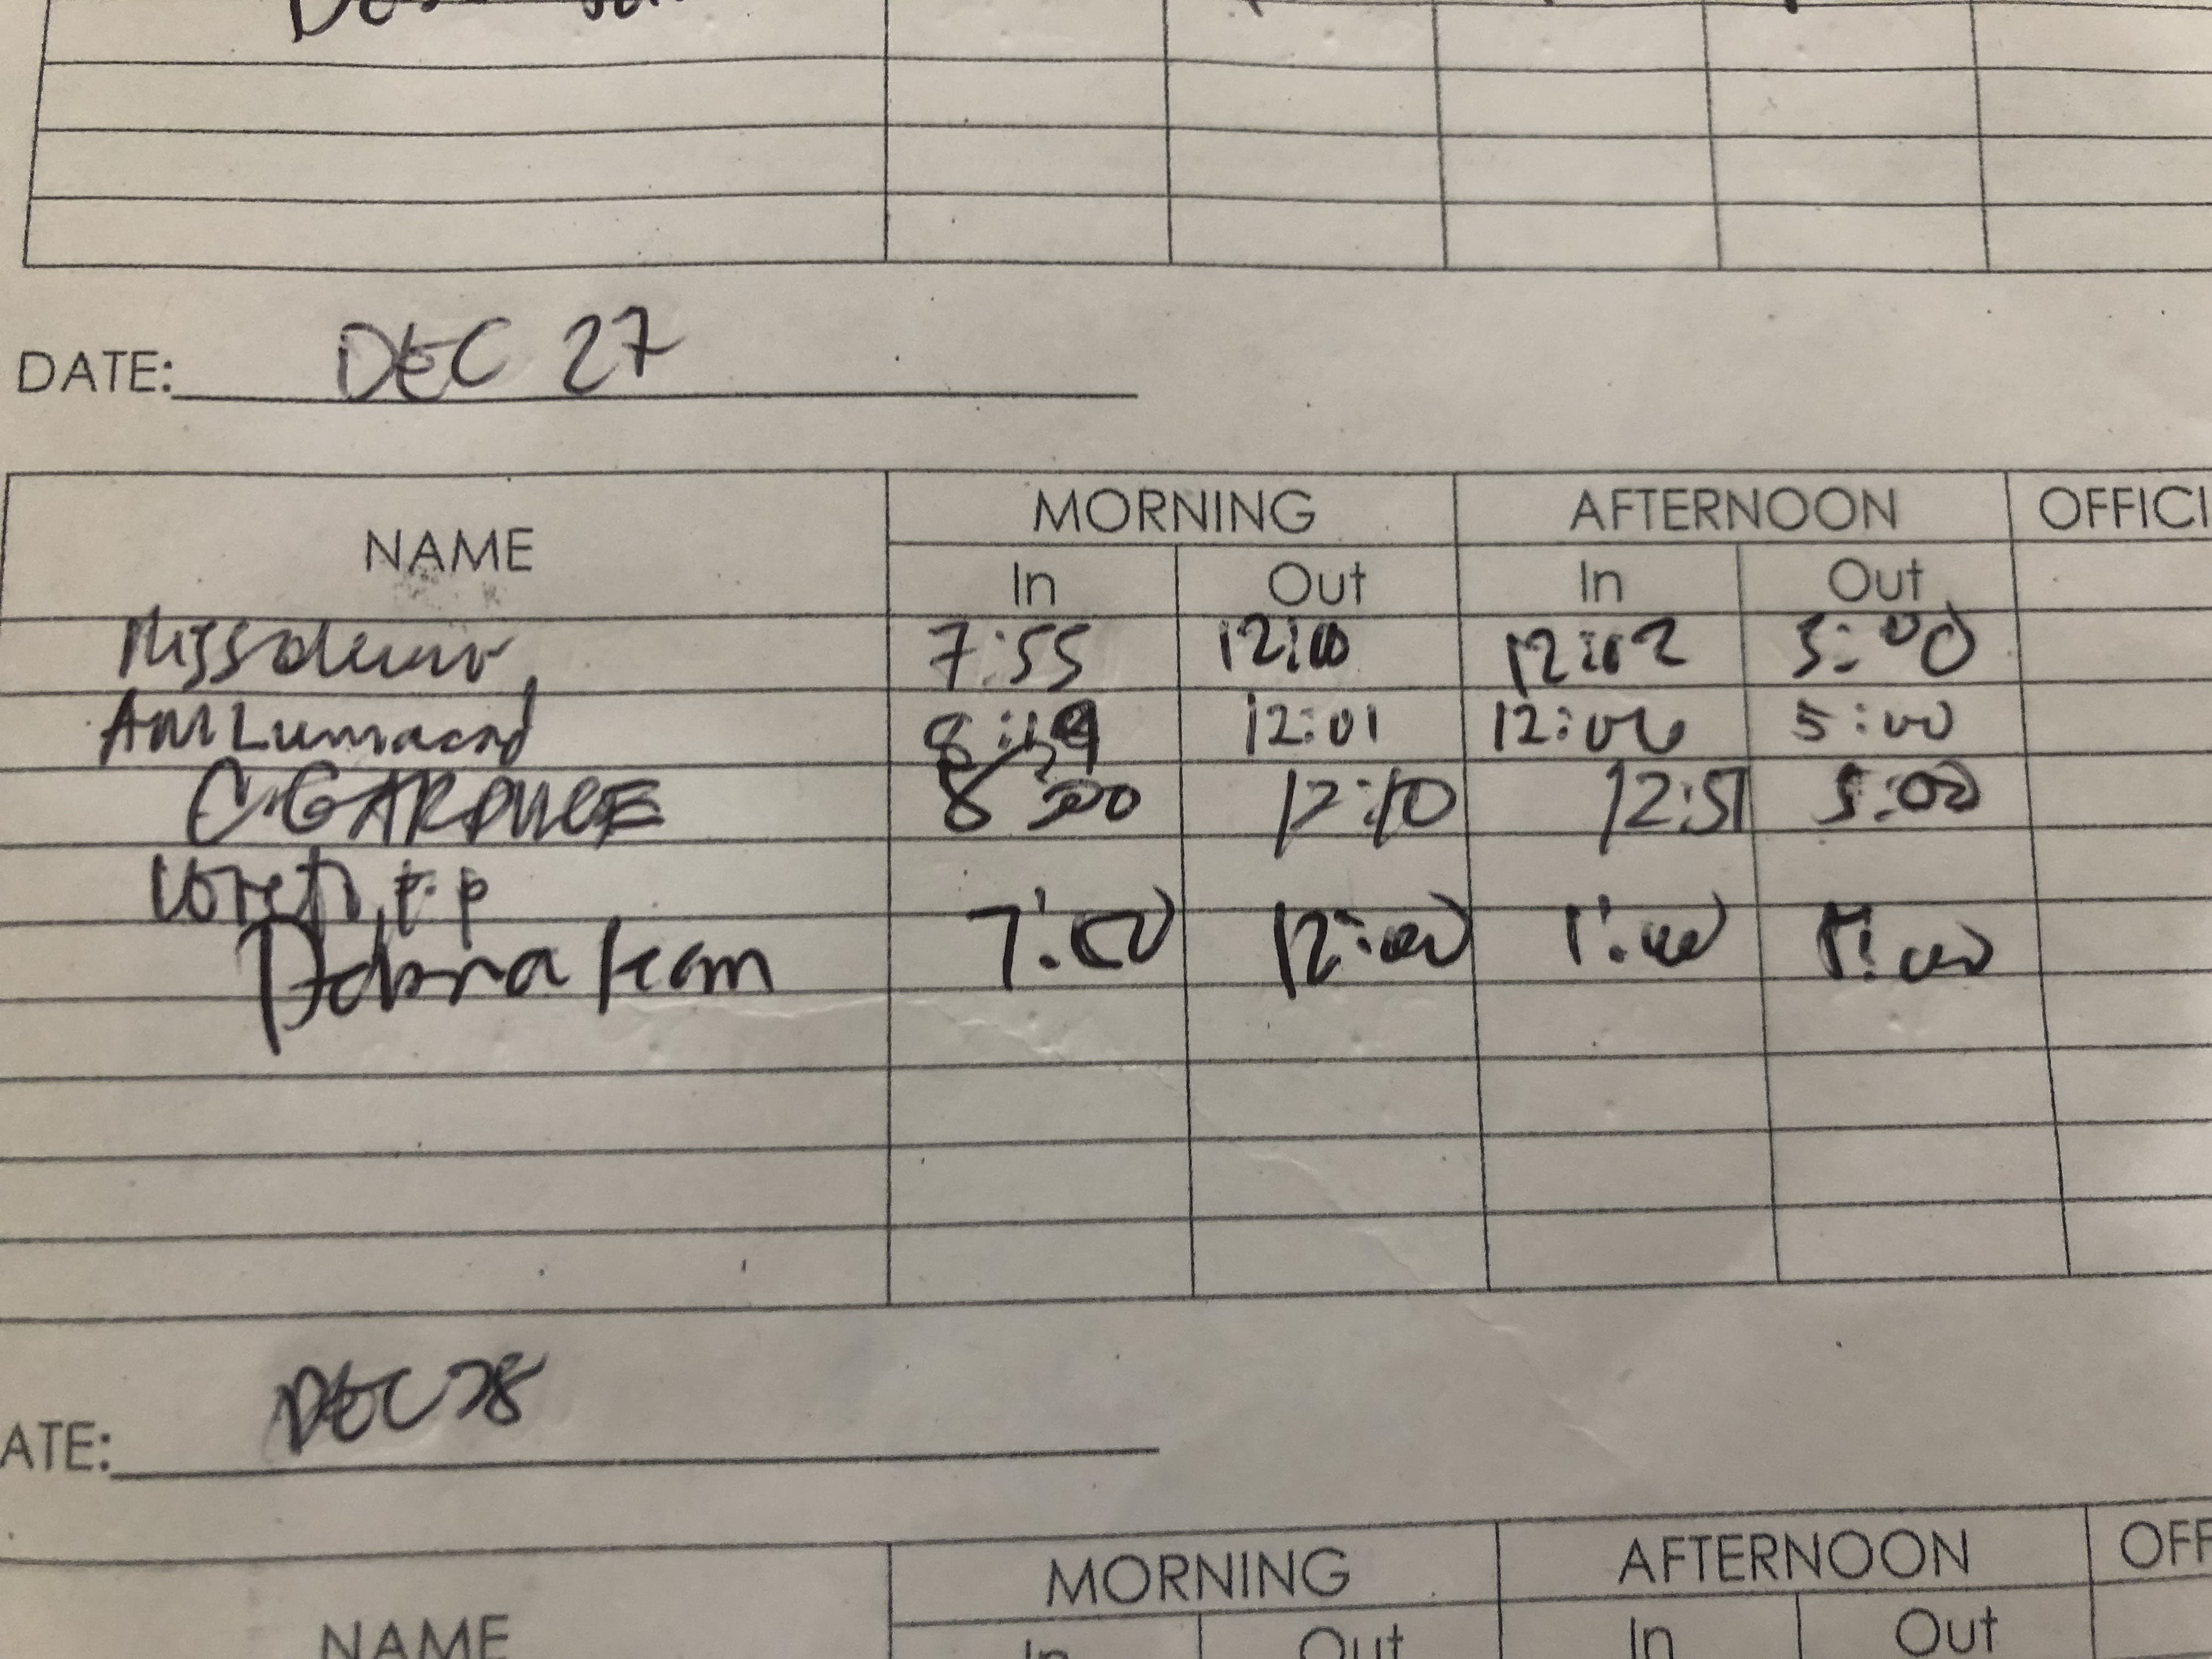 DATE: DEC 27
NAME MORNING AFTERNOON OFFICI
In Out In Out
7:55 12:00 12:02 5:00
AM Lumacad 12:01 12:06 5:00
C. GARDUCE 8:00 12:10 12:51 5:00
7:50 12:00 1:00 5:00
ATE: DEC 28
MORNING AFTERNOON OFF
NAME In Out In Out